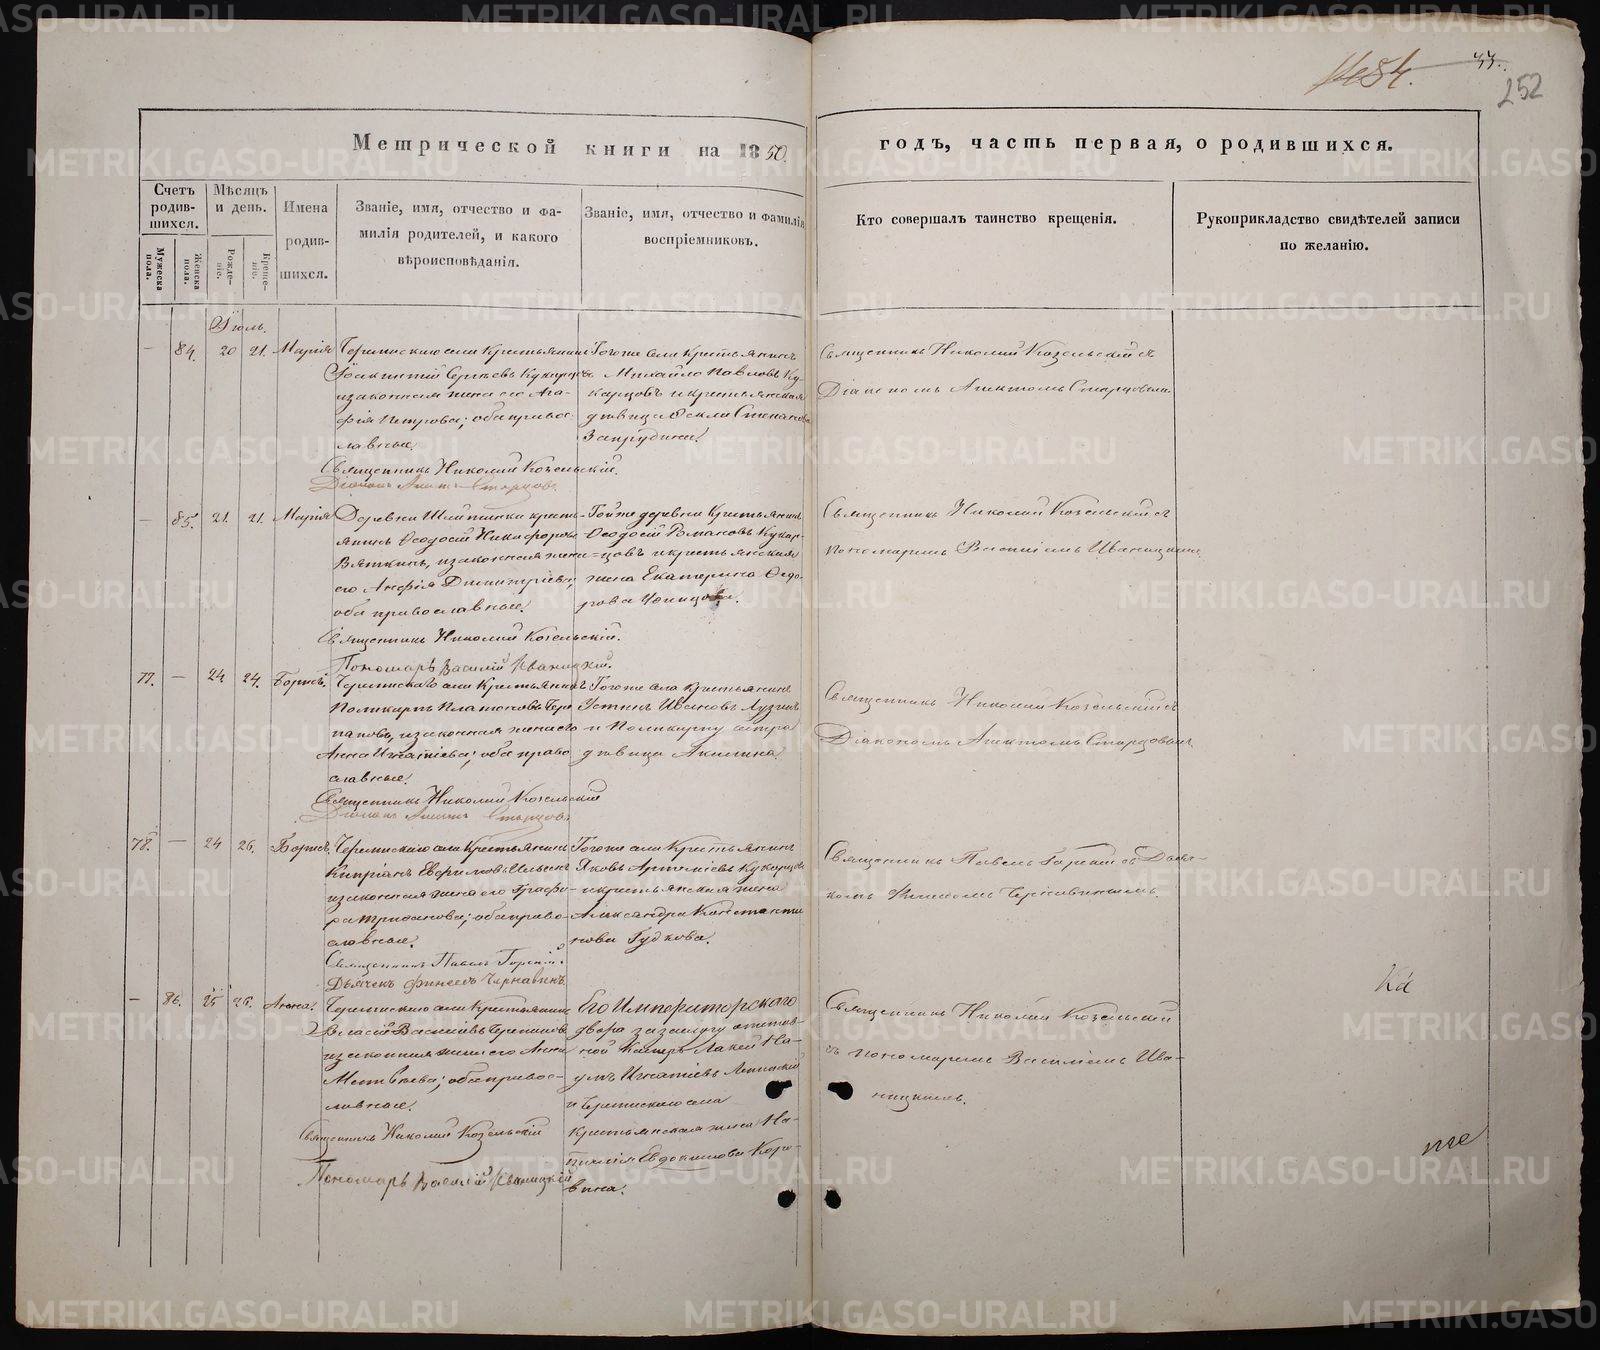 44.
252
Метрической книги на 1850.
годъ, часть первая, о родившихся.
Счетъ родив-шихся.
Мѣсяцъ и день.
Имена родив-шихся.
Званіе, имя, отчество и фа-
милія родителей, и какого
вѣроисповѣданія.
Званіе, имя, отчество и фамилія
воспріемниковъ.
Кто совершалъ таинство крещенія.
Рукоприкладство свидѣтелей записи
по желанію.
Мужеска пола.
Женска пола.
Рожде-ніе.
Креще-ніе.
Іюль.
— 84. 20 21. Марія
Черемискаго села Крестьянинъ
Іоакинтій Сергѣевъ Кукарцевъ
и законная жена его Ага-
фія Петрова; оба правос-
лавные.
Священникъ Николай Козельскій.
Того же села Крестьянинъ
Михайло Павловъ Ку-
карцовъ и крестьянская
дѣвица Ѳекла Степанова
Запрудина.
Священникъ Николай Козельскій съ
Діакономъ Старцовымъ
— 85. 21. 21. Марія
Деревни крестья-
янинъ Ѳеодосій Никифоровъ
Вяткинъ, и законная жена
его Димитріева,
оба православные.
Священникъ Николай Козельскій.
Пономарь Василій Иваницкій.
Той же деревни Крестьянинъ
Ѳеодосій Романовъ Кукар-
цовъ и крестьянская
жена Екатерина Ѳедо-
рова
Священникъ Николай Козельскій съ
пономаремъ Василіемъ Иваницкимъ
77. — 24 24. Борисъ.
Черемискаго села Крестьянинъ
Поликарпъ Платоновъ Чере-
пановъ, и законная жена его
Анна Игнатіева; оба право
славные.
Священникъ Николай Козельскій
Того же села крестьянинъ
Устинъ Ивановъ Лузинъ
и Поликарпу сестра
дѣвица Акилина.
Священникъ Николай Козельскій съ
Діакономъ Старцовымъ
78. — 24 26. Борисъ.
Черемискаго села Крестьянинъ
Кипріянъ Ефимовъ Ильинъ
и законная жена его Глафи-
ра Трифанова; оба право-
славные.
Священникъ Павелъ Горскій.
Дьячекъ Финеесъ Чернавинъ.
Того же села Крестьянинъ
Яковъ Артеміевъ Кукарцовъ
и крестьянская жена
Александра Константи
нова Гудкова.
Священникъ Павелъ Горскій съ Дьяч-
комъ Финеесомъ Чернавинымъ.
— 86. 25 26. Анна.
Черемискаго села Крестьянинъ
Власій Василіевъ Черепановъ
и законная жена его Анна
Матвѣева; оба правос-
лавные.
Священникъ Николай Козельскій
Пономарь Василій Иваницкій
Его Императорскаго
двора за заслугу отстав-
ной Камеръ Лакей На-
умъ Игнатіевъ
и Черемискаго села
Крестьянская жена На-
талія Евдокимова Коро-
вина.
Священникъ Николай Козельскій
съ пономаремъ Василіемъ Ива-
ницкимъ.
METRIKI.GASO-URAL.RU